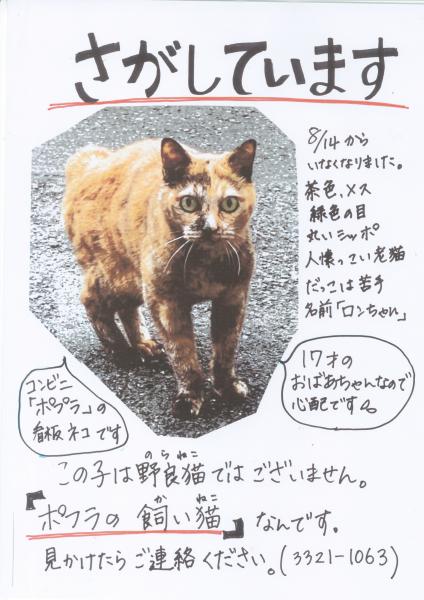 さがしています
8/14から
いなくなりました。
茶色、メス
緑色の目
丸いシッポ
人懐っこい老猫
だっこは苦手
名前「ロンちゃん」
17才の
おばあちゃんなので
心配です。
コンビニ
「ポプラ」の
看板ネコです
のらねこ
この子は野良猫ではございません。
かねこ
『ポプラの飼い猫』なんです。
見かけたらご連絡ください。(3321-1063)